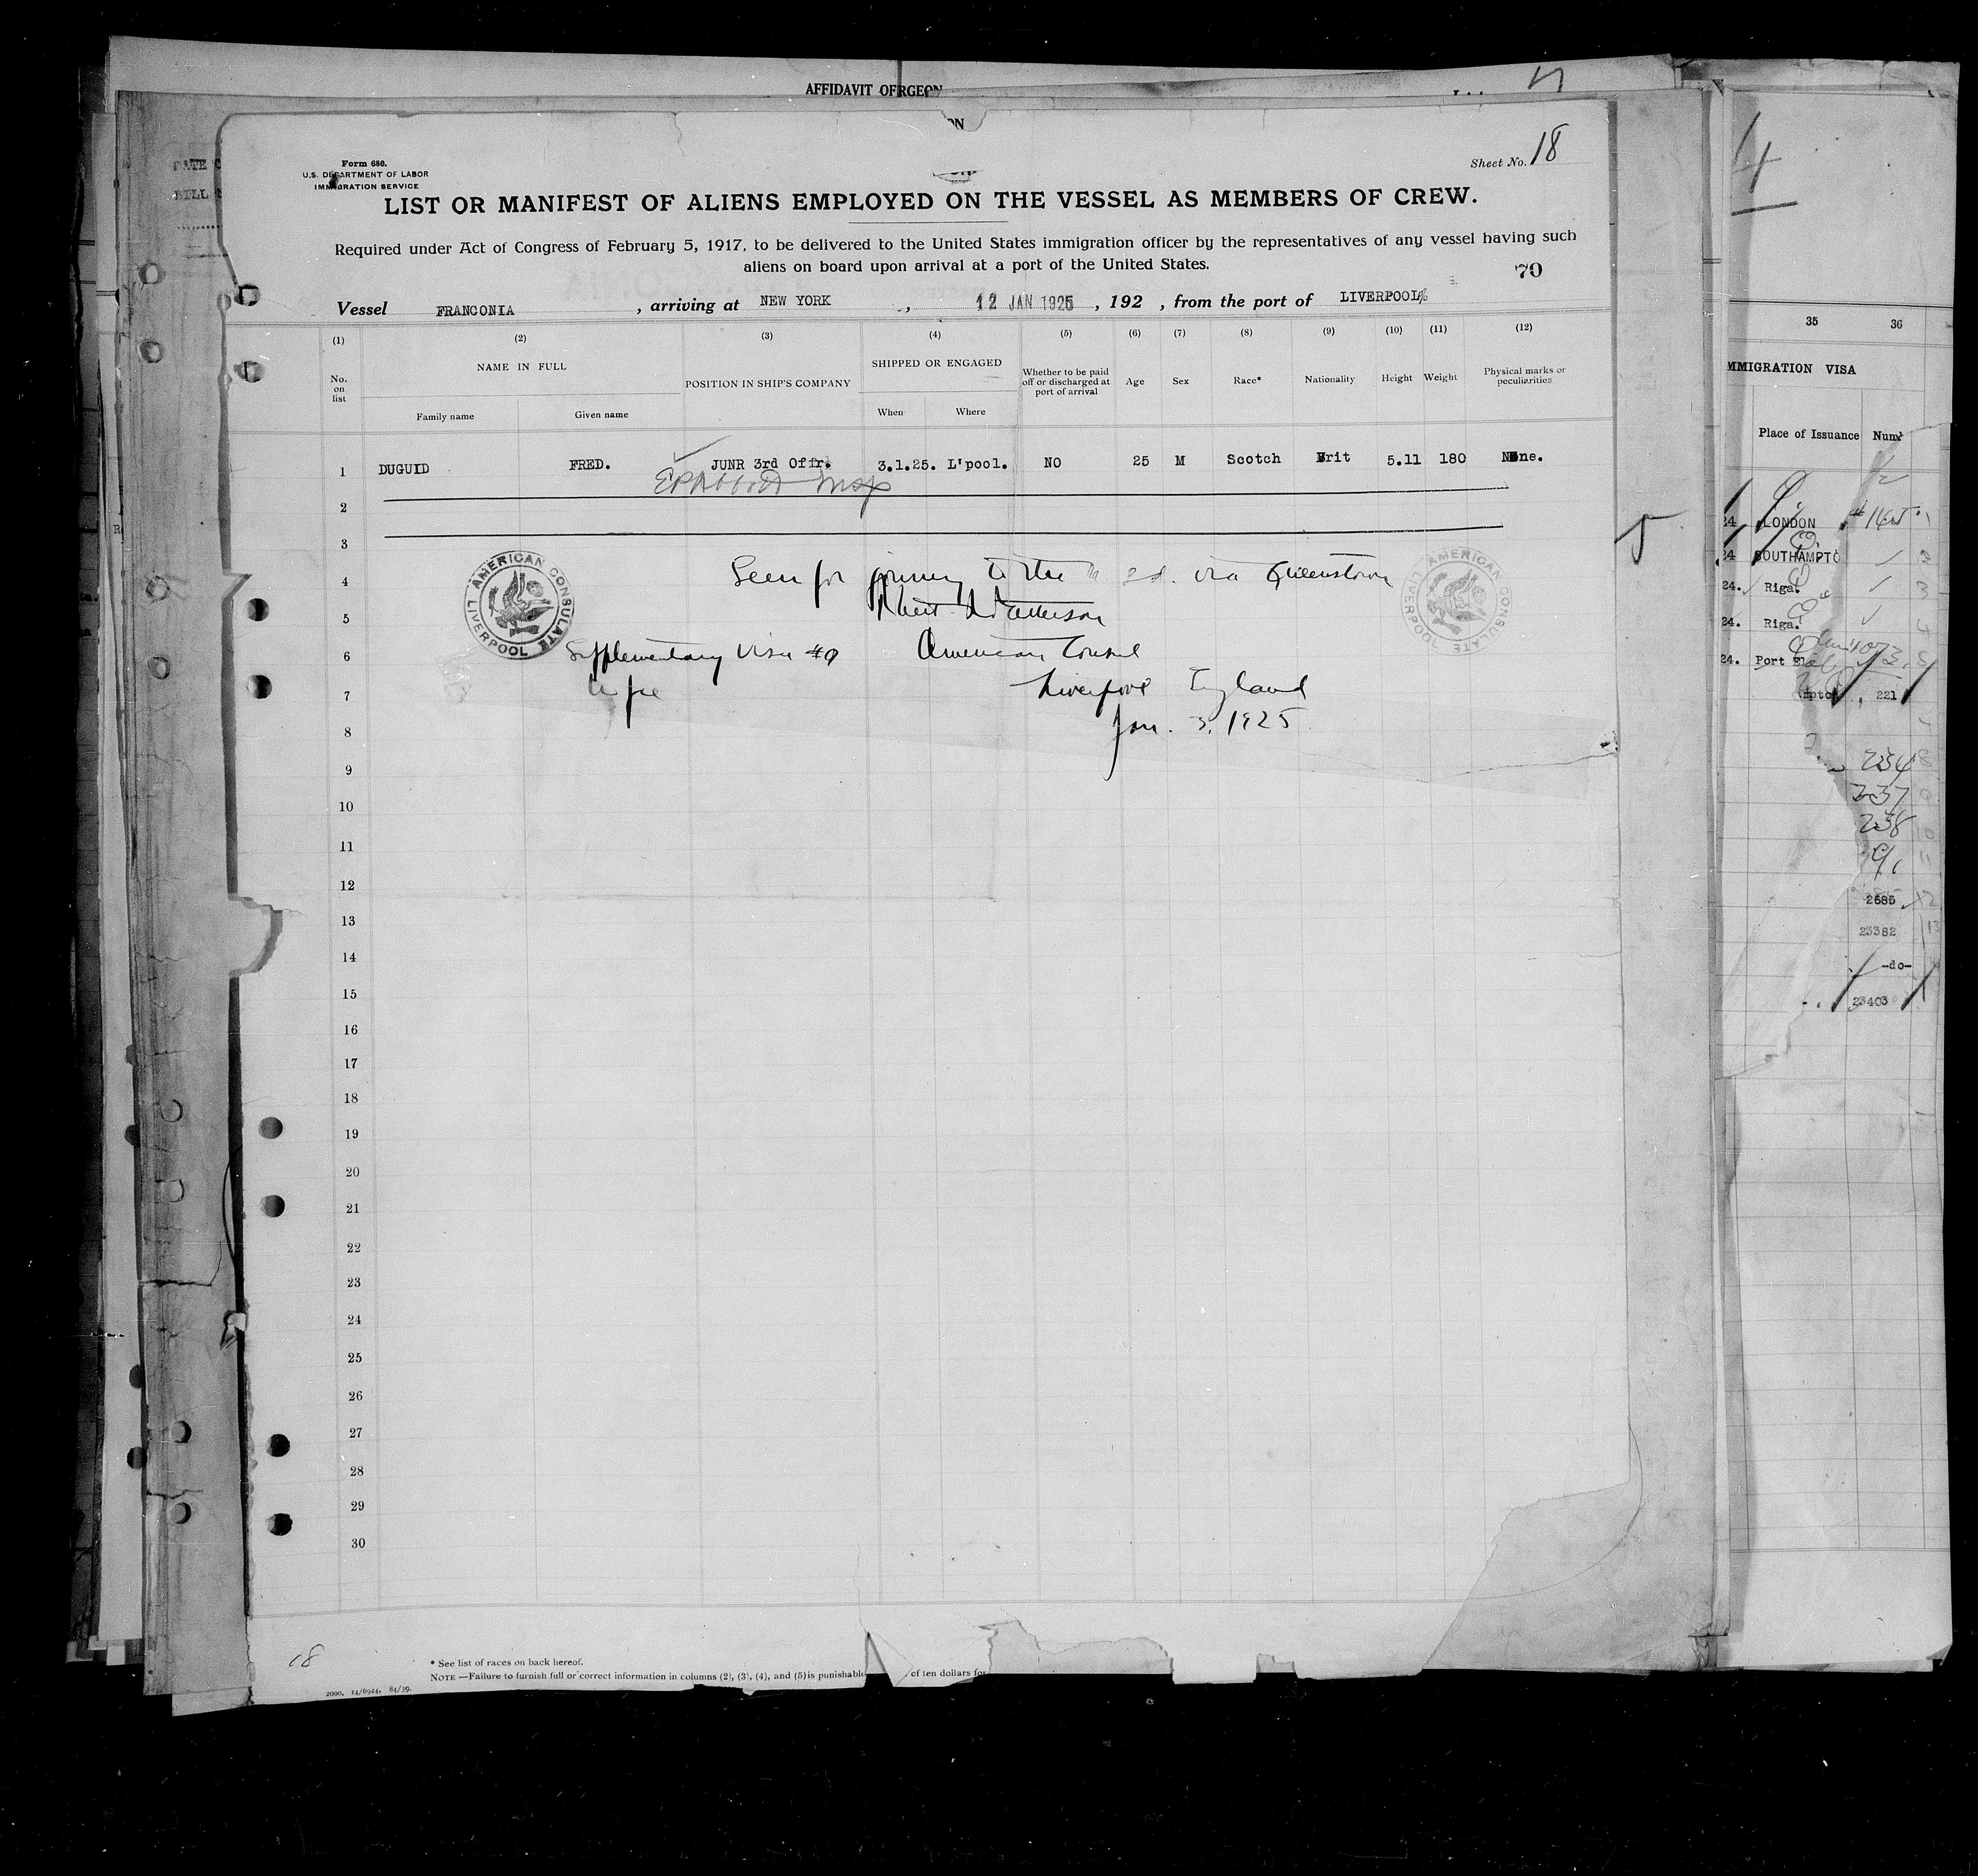 AFFIDAVIT OF RGEON
ON
Form 680.
U.S. DEPARTMENT OF LABOR
IMMIGRATION SERVICE
Sheet No. 18
LIST OR MANIFEST OF ALIENS EMPLOYED ON THE VESSEL AS MEMBERS OF CREW.
Required under Act of Congress of February 5, 1917, to be delivered to the United States immigration officer by the representatives of any vessel having such
aliens on board upon arrival at a port of the United States.
70
Vessel FRANCONIA , arriving at NEW YORK , 12 JAN 1925 , 192 , from the port of LIVERPOOL
(1) (2) (3) (4) (5) (6) (7) (8) (9) (10) (11) (12)
No. on list NAME IN FULL POSITION IN SHIP'S COMPANY SHIPPED OR ENGAGED Whether to be paid off or discharged at port of arrival Age Sex Race* Nationality Height Weight Physical marks or peculiarities
Family name Given name When Where
1 DUGUID FRED. JUNR 3rd Offr. 3.1.25. L'pool. NO 25 M Scotch Brit 5.11 180 None.
2
3
4 Seen for journey to the via Queenstown
5 Robert Patterson
6 Supplementary Visa #9 American Consul
7 Liverpool England
8 Jan. 3, 1925
9
10
11
12
13
14
15
16
17
18
19
20
21
22
23
24
25
26
27
28
29
30
AMERICAN CONSULATE LIVERPOOL
AMERICAN CONSULATE LIVERPOOL
18
* See list of races on back hereof.
NOTE —Failure to furnish full or correct information in columns (2), (3), (4), and (5) is punishable of ten dollars for
2000. 14/6924. 84/39.
4
35 36
MMIGRATION VISA
Place of Issuance Numb
24 LONDON
24 SOUTHAMPTO
24. Riga.
24. Riga.
24. Port El
mpto 221
234
237
238
2685
23382
-do-
23403